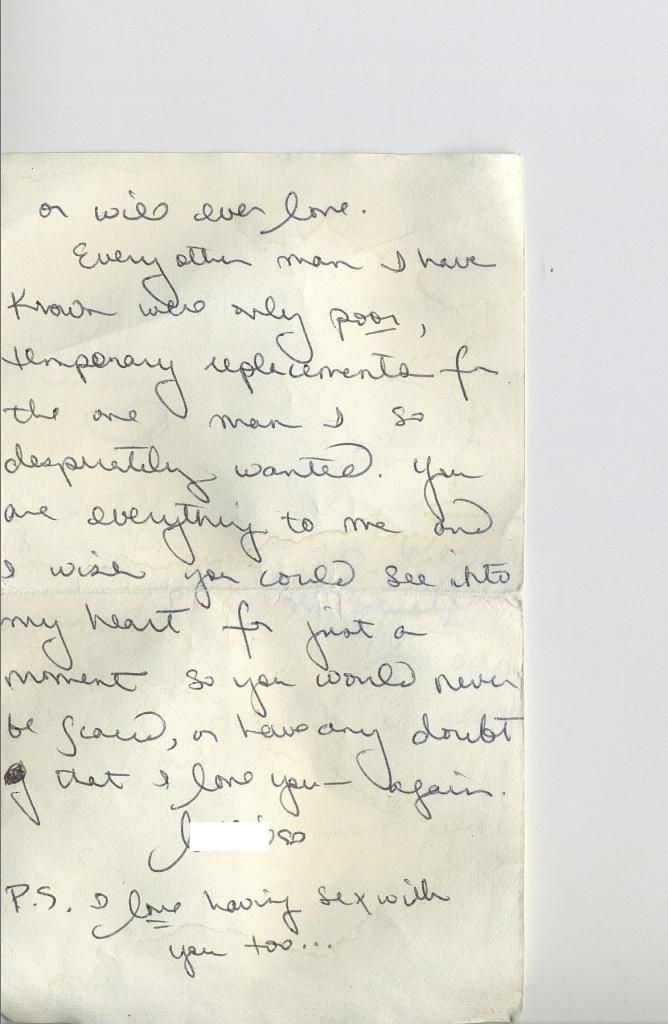 or will ever love.
Every other man I have
known were only poor,
temporary replacements for
the one man I so
despretely wanted. You
are everything to me and
I wish you could see into
my heart for just a
moment so you would never
be scared, or have any doubt
that I love you— again.
P.S. I love having sex with
you too...